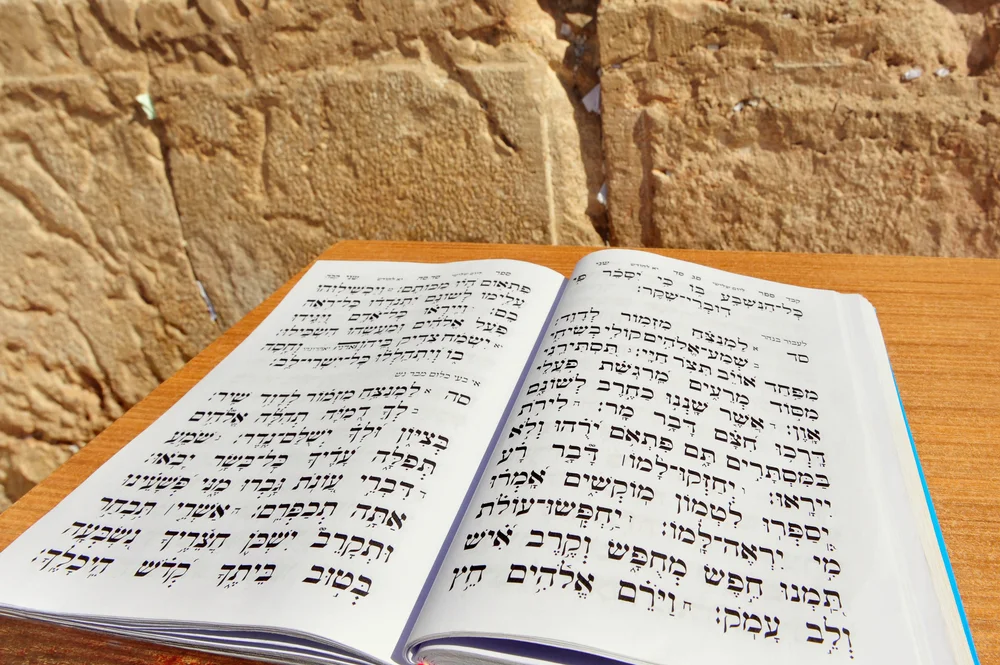 ספר יום שלישי סג סד יא לחודש שני
כָּל־הַנִּשְׁבָּע בּוֹ כִּי יִסָּכֵר פִּי
דוֹבְרֵי־שָׁקֶר:
לעבור בנהר
סד א לַמְנַצֵּחַ מִזְמוֹר לְדָוִד:
ב שְׁמַע־אֱלֹהִים קוֹלִי בְשִׂיחִי
מִפַּחַד אוֹיֵב תִּצֹּר חַיָּי: ג תַּסְתִּירֵנִי
מִסּוֹד מְרֵעִים מֵרִגְשַׁת פֹּעֲלֵי
אָוֶן: ד אֲשֶׁר שָׁנְנוּ כַחֶרֶב לְשׁוֹנָם
דָּרְכוּ חִצָּם דָּבָר מָר: ה לִירֹת
בַּמִּסְתָּרִים תָּם פִּתְאֹם יֹרֻהוּ וְלֹא
יִירָאוּ: ו יְחַזְּקוּ־לָמוֹ דָּבָר רָע
יְסַפְּרוּ לִטְמוֹן מוֹקְשִׁים אָמְרוּ
מִי יִרְאֶה־לָּמוֹ: ז יַחְפְּשׂוּ־עוֹלֹת
תַּמְנוּ חֵפֶשׂ מְחֻפָּשׂ וְקֶרֶב אִישׁ
וְלֵב עָמֹק: ח וַיֹּרֵם אֱלֹהִים חֵץ
ספר יום שלישי סד סה יא לחודש שני
פִּתְאוֹם הָיוּ מַכּוֹתָם: ט וַיַּכְשִׁילוּהוּ
עָלֵימוֹ לְשׁוֹנָם יִתְנֹדְדוּ כָּל־רֹאֵה
בָם: י וַיִּירְאוּ כָּל־אָדָם וַיַּגִּידוּ
פֹּעַל אֱלֹהִים וּמַעֲשֵׂהוּ הִשְׂכִּילוּ:
יא יִשְׂמַח צַדִּיק בַּיהוָה וְחָסָה
בוֹ וְיִתְהַלְלוּ כָּל־יִשְׁרֵי־לֵב:
סה א לַמְנַצֵּחַ מִזְמוֹר לְדָוִד שִׁיר:
ב לְךָ דֻמִיָּה תְהִלָּה אֱלֹהִים
בְּצִיּוֹן וּלְךָ יְשֻׁלַּם־נֶדֶר: ג שֹׁמֵעַ
תְּפִלָּה עָדֶיךָ כָּל־בָּשָׂר יָבֹאוּ:
ד דִּבְרֵי עֲוֹנֹת גָּבְרוּ מֶנִּי פְּשָׁעֵינוּ
אַתָּה תְכַפְּרֵם: ה אַשְׁרֵי תִּבְחַר
וּתְקָרֵב יִשְׁכֹּן חֲצֵרֶיךָ נִשְׂבְּעָה
בְּטוּב בֵּיתֶךָ קְדֹשׁ הֵיכָלֶךָ: